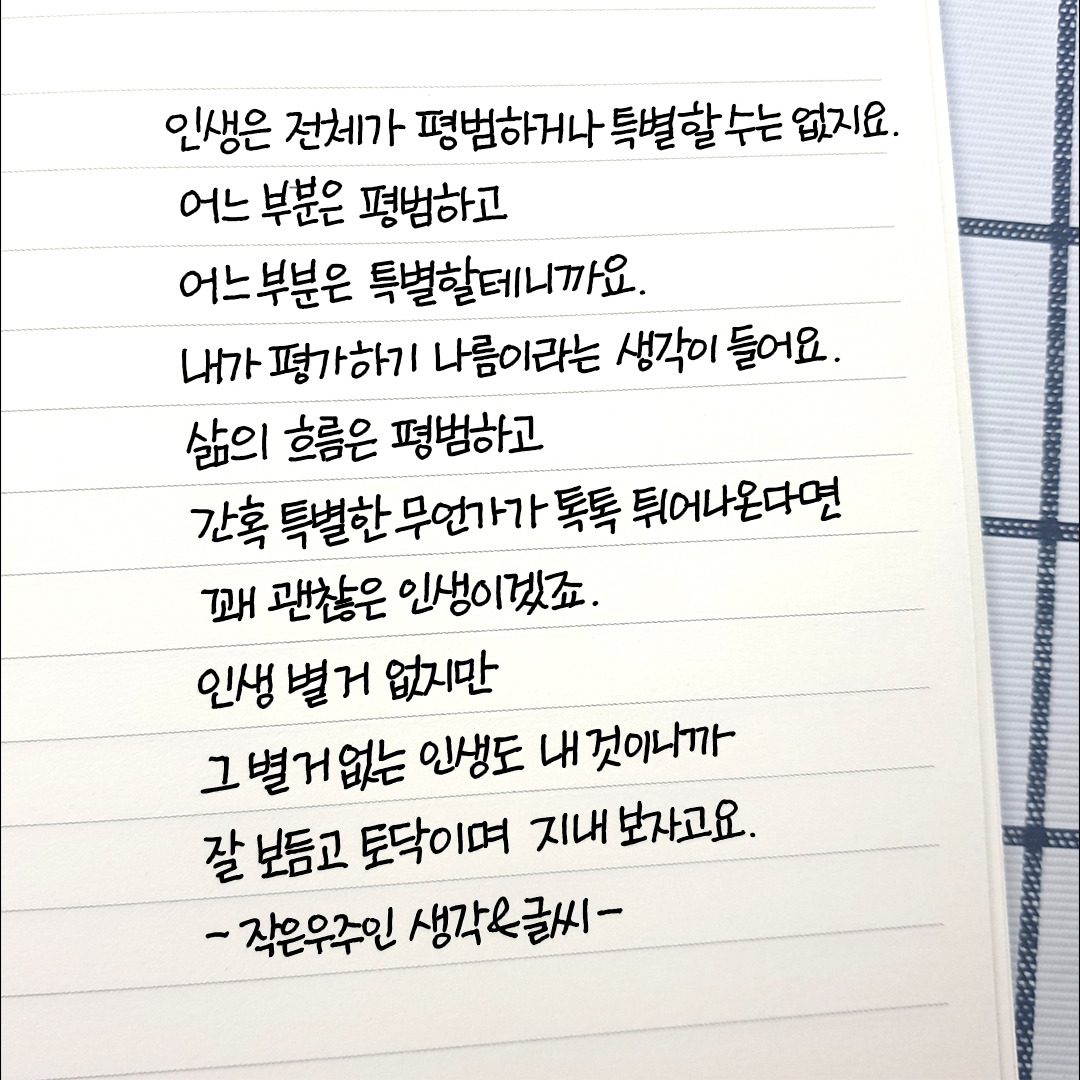 인생은 전체가 평범하거나 특별할 수는 없지요.
어느 부분은 평범하고
어느 부분은 특별할테니까요.
내가 평가하기 나름이라는 생각이 들어요.
삶의 흐름은 평범하고
간혹 특별한 무언가가 톡톡 튀어나온다면
꽤 괜찮은 인생이겠죠.
인생 별거 없지만
그 별거 없는 인생도 내 것이니까
잘 보듬고 토닥이며 지내 보자고요.
- 작은우주인 생각&글씨 -